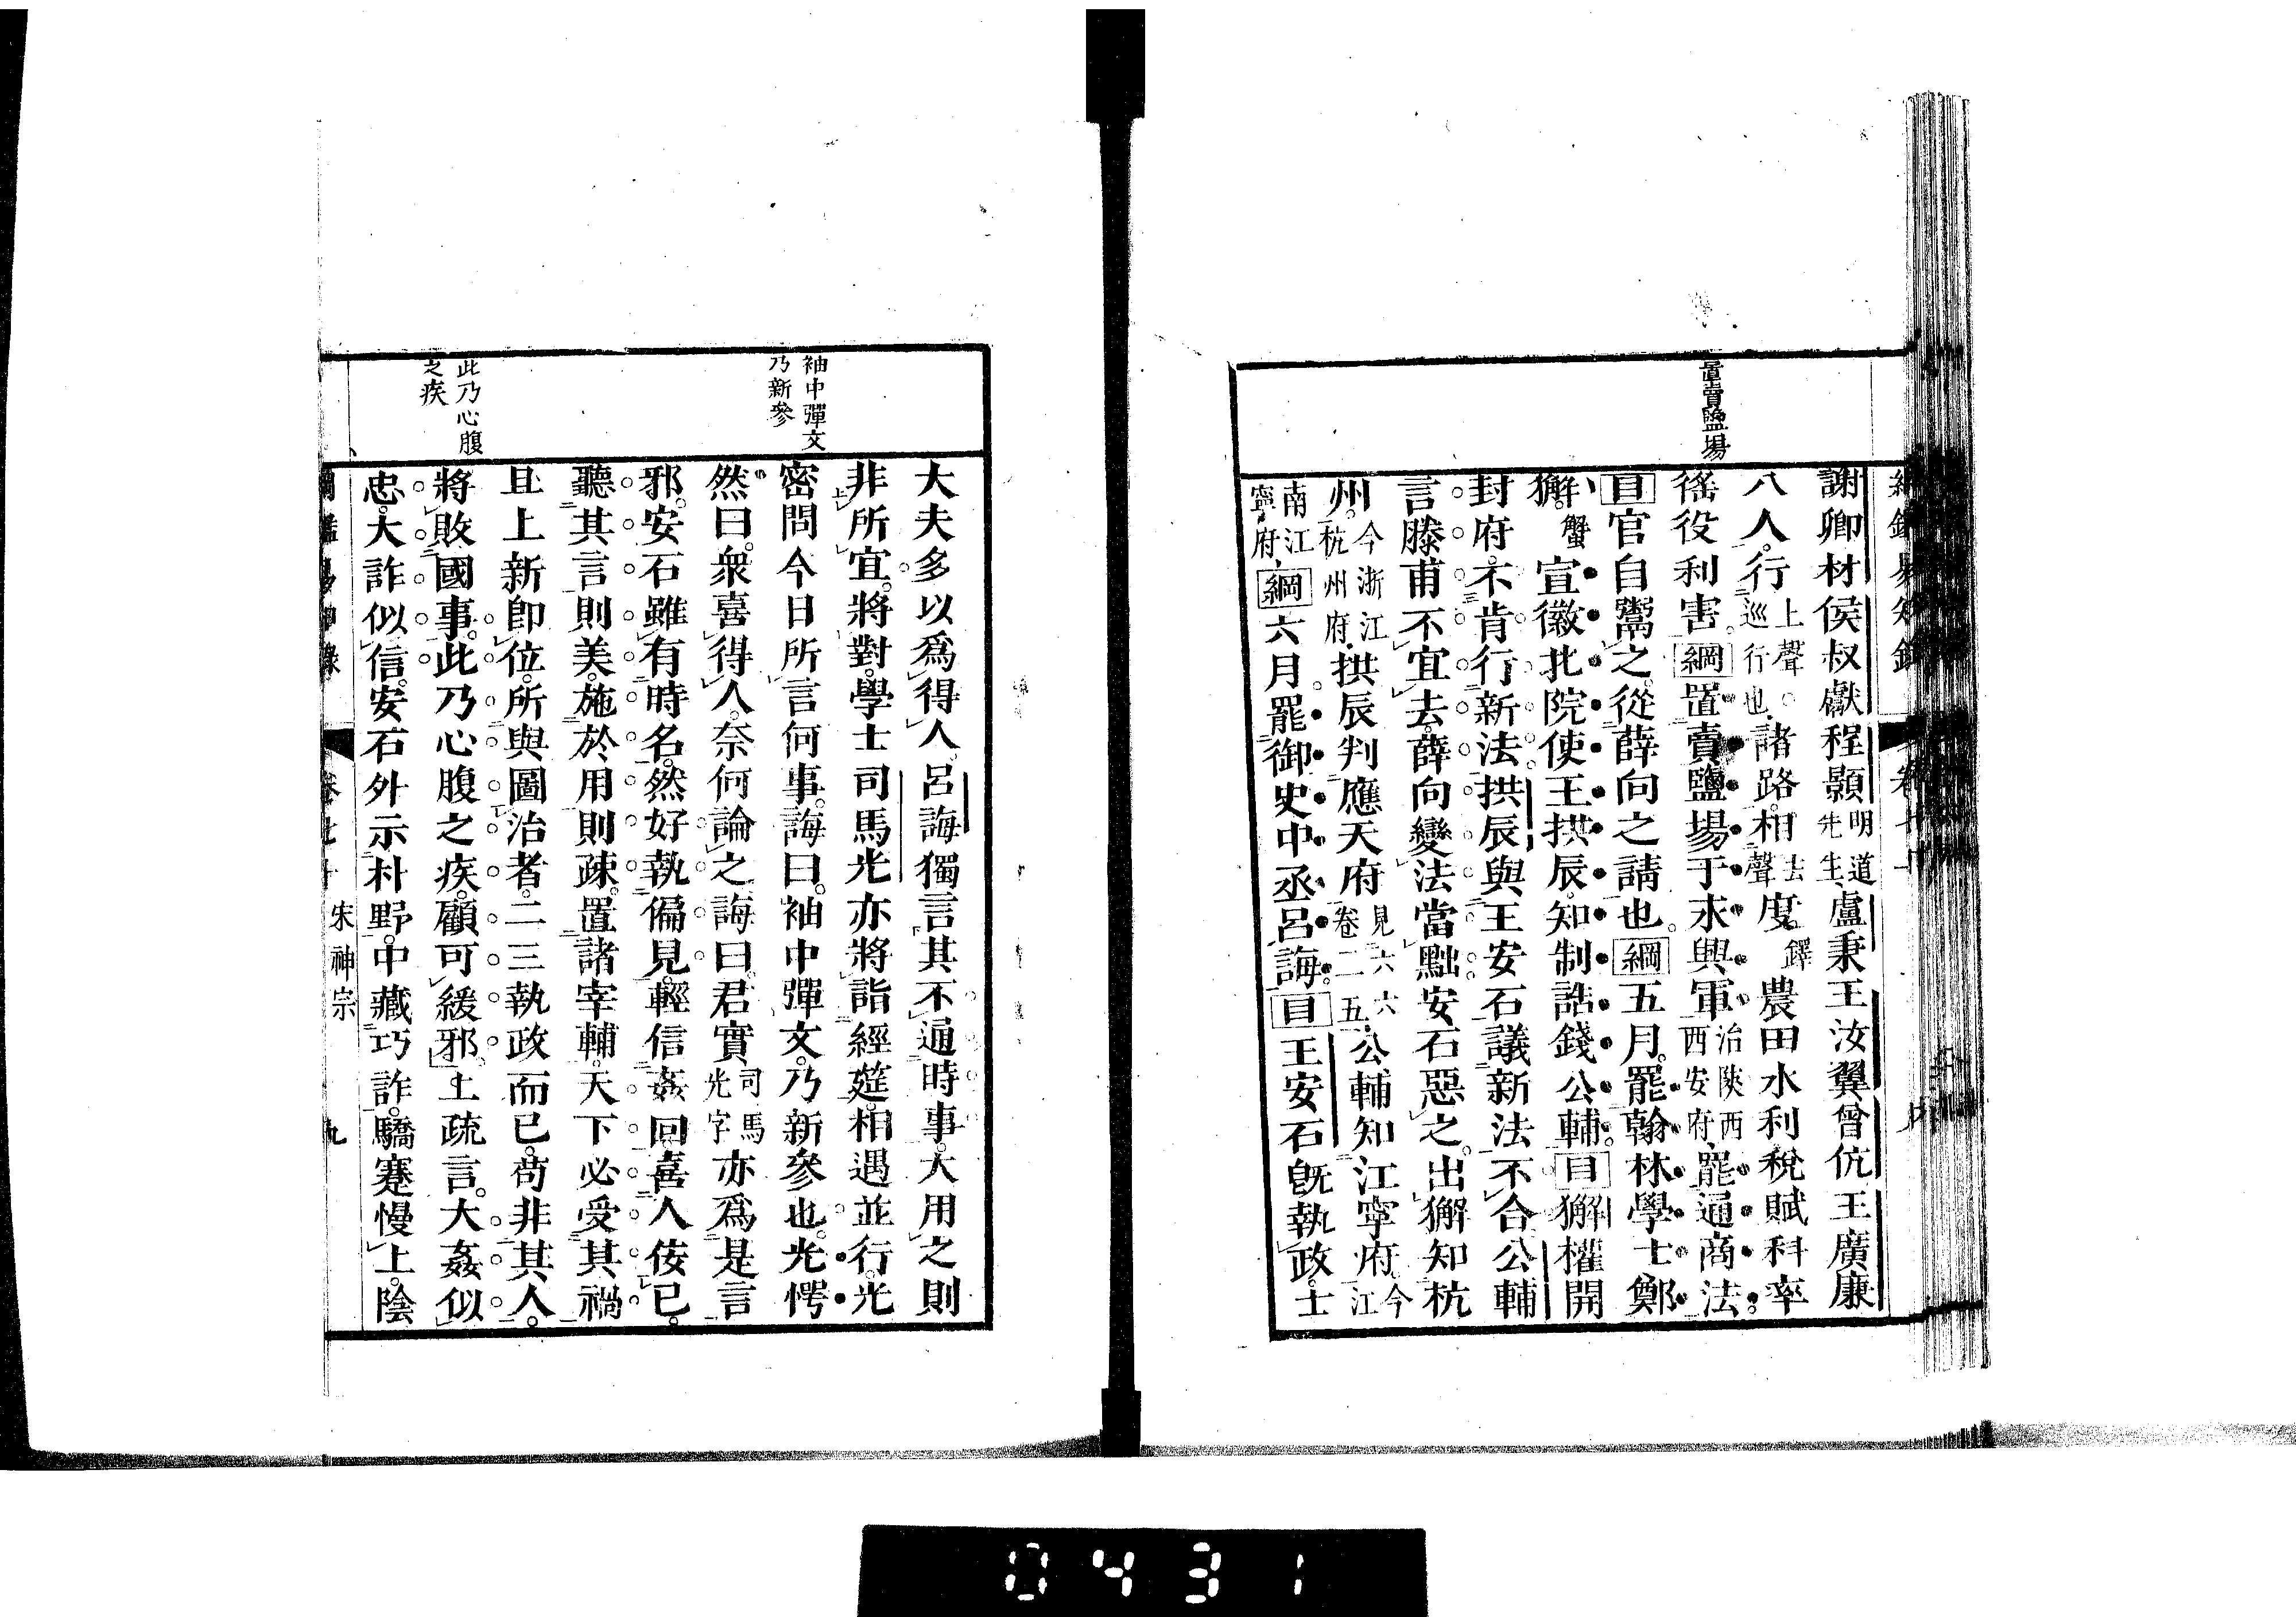 置賣鹽場
謝卿材侯叔獻程顥明道先生盧秉王汝翼曾伉王廣廉
八人行上聲○巡行也諸路相去聲度鐸農田水利稅賦科率
徭役利害綱置賣鹽場于永興軍治陝西西安府罷通商法
目官自鬻之從薛向之請也綱五月罷翰林學士鄭
獬蟹宣徽北院使王拱辰知制誥錢公輔目獬權開
封府不肯行新法拱辰與王安石議新法不合公輔
言滕甫不宜去薛向變法當黜安石惡之出獬知杭
州今浙江杭州府拱辰判應天府見六六卷二五公輔知江寧府今江
南江寧府綱六月罷御史中丞呂誨目王安石旣執政士
袖中彈文
乃新參
此乃心腹
之疾
大夫多以爲得人呂誨獨言其不通時事大用之則
非所宜將對學士司馬光亦將詣經筵相遇並行光
密問今日所言何事誨曰袖中彈文乃新參也光愕
然曰衆喜得人奈何論之誨曰君實司馬光字亦爲是言
邪安石雖有時名然好執偏見輕信姦回喜人佞已
聽其言則美施於用則疎置諸宰輔天下必受其禍
且上新卽位所與圖治者二三執政而已苟非其人
將敗國事此乃心腹之疾顧可緩邪上疏言大姦似
忠大詐似信安石外示朴野中藏巧詐驕蹇慢上陰
卷七十 宋神宗 九
0431